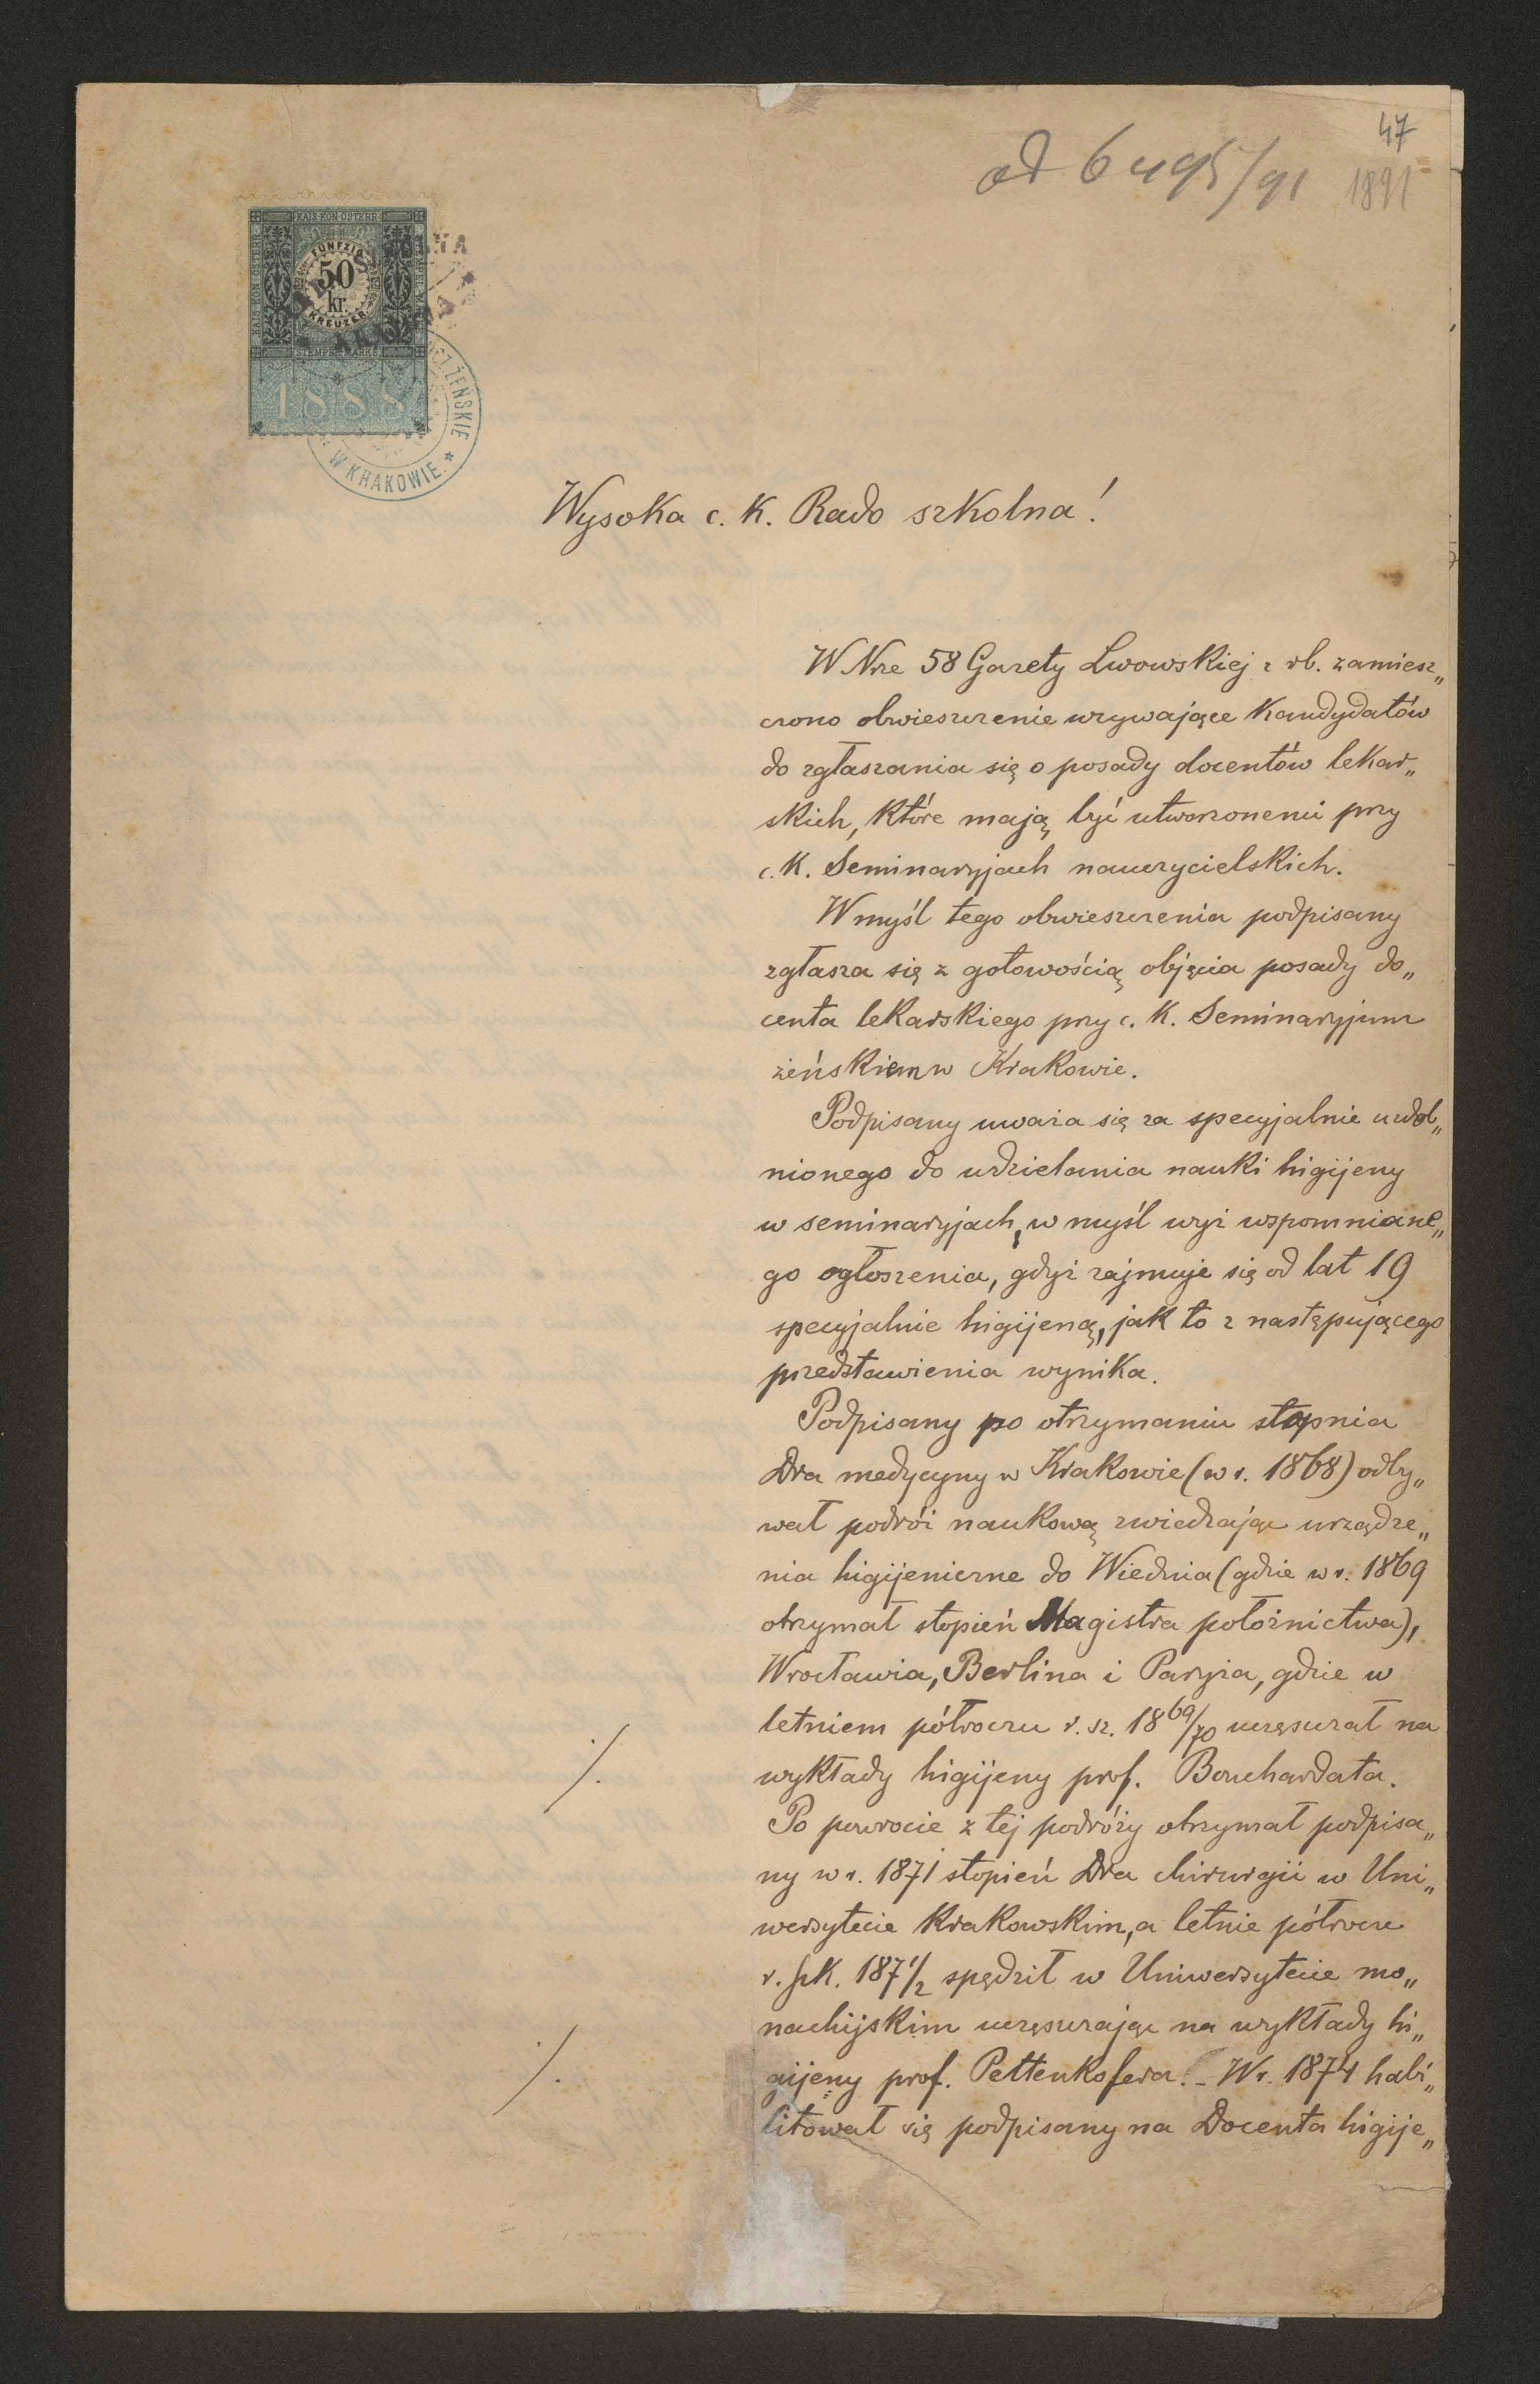 47
ad 6495/91 1891
KAIS. KÖN. ÖSTERR.
FÜNFZIG
50
kr.
KREUZER
STEMPEL MARKE
1888
ŻEŃSKIE
W KRAKOWIE.
Wysoka c. K. Rado szkolna!
W Nrze 58 Gazety Lwowskiej z rb. zamiesz„
czono obwieszczenie wzywające Kandydatów
do zgłaszania się o posady docentów lekar„
skich, które mają być utworzonemi przy
c. K. Seminaryjach nauczycielskich.
W myśl tego obwieszczenia podpisany
zgłasza się z gotowością objęcia posady do„
centa lekarskiego przy c. K. Seminaryjum
żeńskiem w Krakowie.
Podpisany uważa się za specyjalnie uzdol„
nionego do udzielania nauki higijeny
w seminaryjach, w myśl wyż wspomniane„
go ogłoszenia, gdyż zajmuje się od lat 19
specyjalnie higijeną, jak to z następującego
przedstawienia wynika.
Podpisany po otrzymaniu stopnia
Dra medycyny w Krakowie (w r. 1868) odby„
wał podróż naukową zwiedzając urządze„
nia higijeniczne do Wiednia (gdzie w r. 1869
otrzymał stopień Magistra położnictwa),
Wrocławia, Berlina i Paryża, gdzie w
letniem półroczu r. sz. 1869/70 uczęszczał na
wykłady higijeny prof. Bouchardata.
Po powrocie z tej podróży otrzymał podpisa„
ny w r. 1871 stopień Dra chirurgii w Uni„
wersytecie Krakowskim, a letnie półrocze
r. szk. 1871/2 spędził w Uniwersytecie mo„
nachijskim uczęszczając na wykłady hi„
gijeny prof. Pettenkofera. – W r. 1874 habi„
litował się podpisany na Docenta higije„